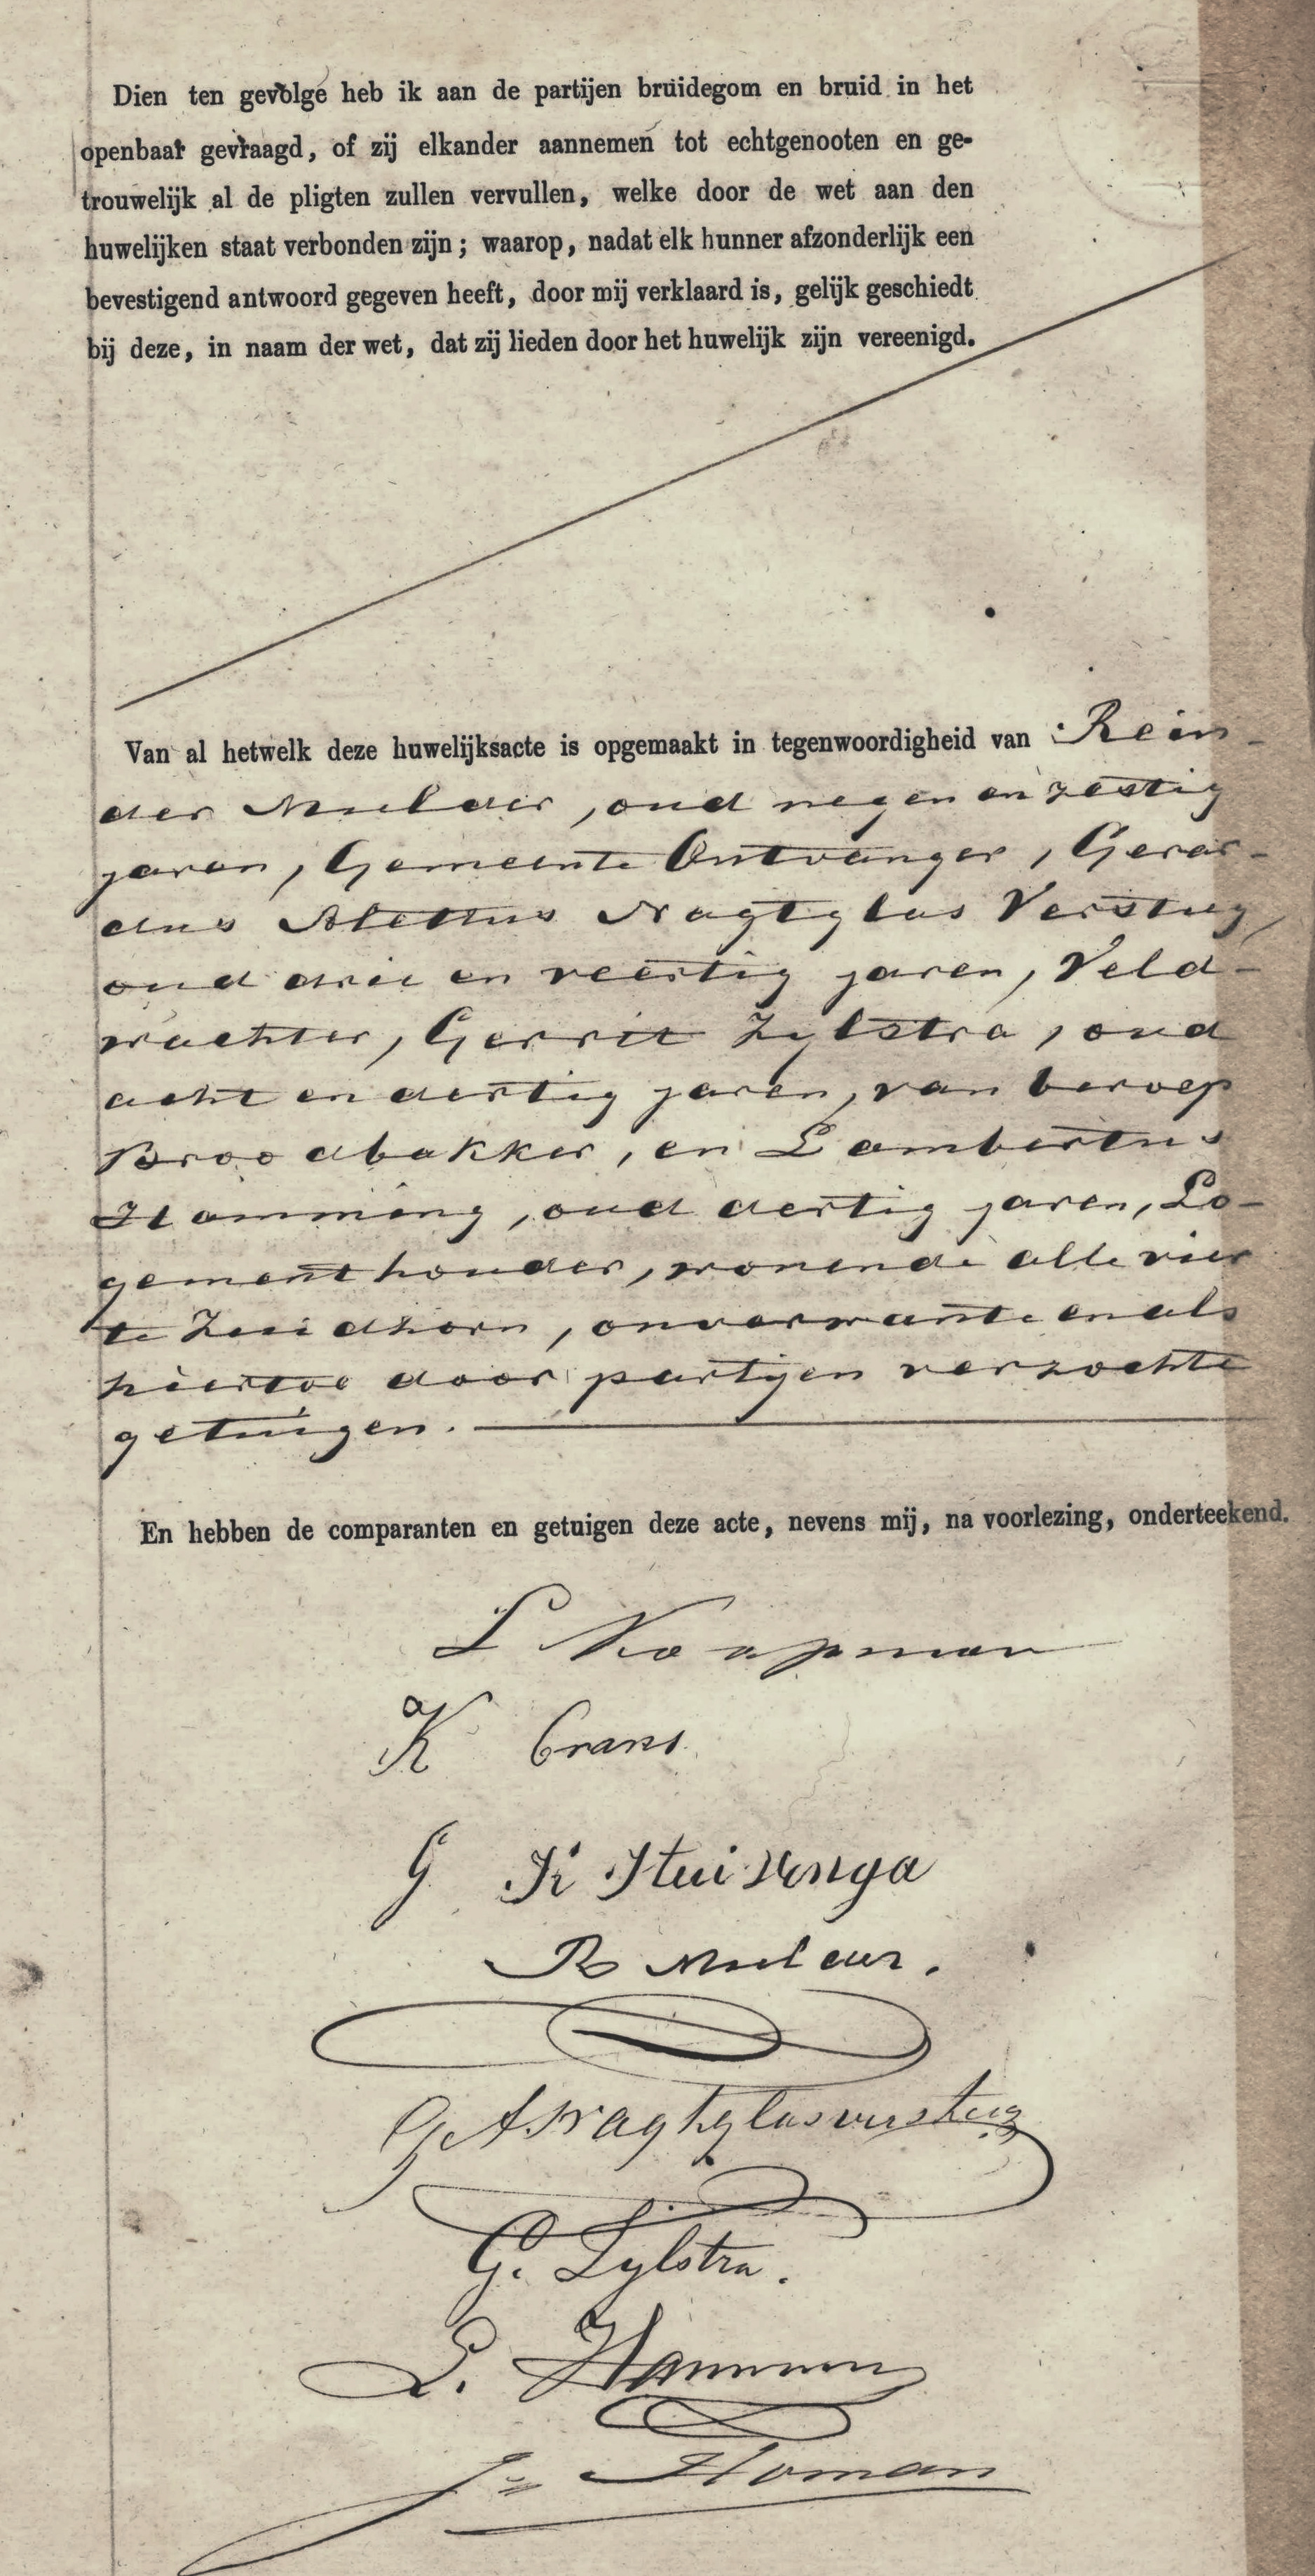 Dien ten gevolge heb ik aan de partijen bruidegom en bruid in het
openbaar gevraagd, of zij elkander aannemen tot echtgenooten en ge-
trouwelijk al de pligten zullen vervullen, welke door de wet aan den
huwelijken staat verbonden zijn; waarop, nadat elk hunner afzonderlijk een
bevestigend antwoord gegeven heeft, door mij verklaard is, gelijk geschiedt
bij deze, in naam der wet, dat zij lieden door het huwelijk zijn vereenigd.
Van al hetwelk deze huwelijksacte is opgemaakt in tegenwoordigheid van Rein-
der Mulder, oud negen en zestig
jaren, Gemeente Ontvanger, Gerar-
dus Alettus Nagtglas Versteeg,
oud drie en veertig jaren, Veld-
wachter, Gerrit Zylstra, oud
acht en dertig jaren, van beroep
Broodbakker, en Lambertus
Hamming, oud dertig jaren, Lo-
gementhouder, wonende alle vier
te Zuidhorn, onverwante en als
hiertoe door partyen verzochte
getuigen.
En hebben de comparanten en getuigen deze acte, nevens mij, na voorlezing, onderteekend.
L Koapman
K Crans
G K Huizenga
R Mulder.
G A Nagtglas versteeg
G. Zylstra.
L. Hamming
J= Homan